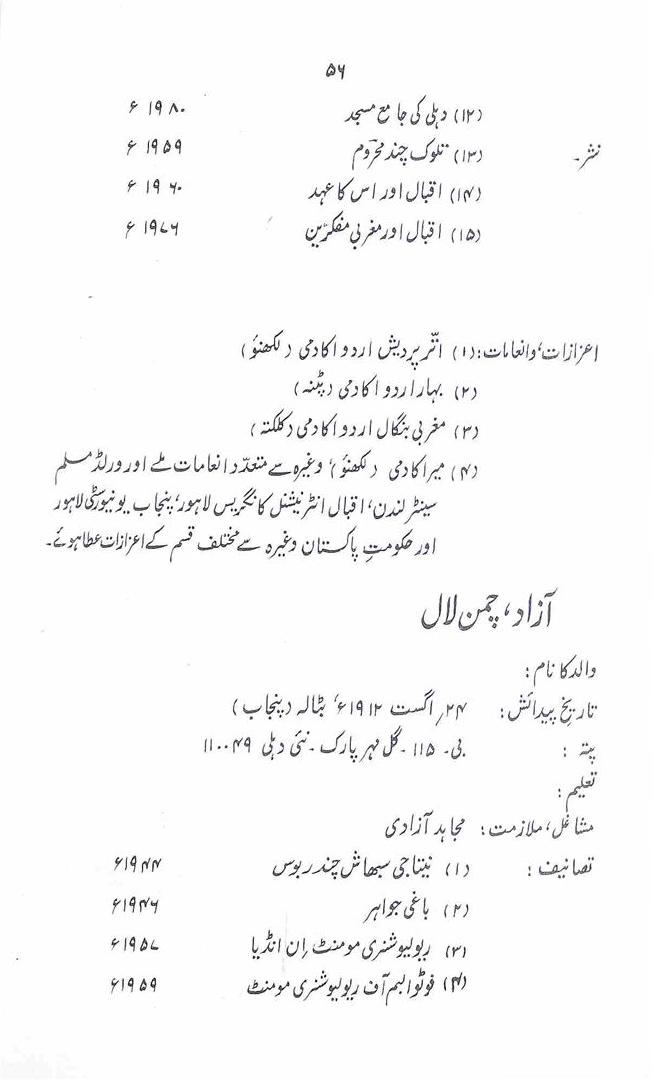 ۵۶
(۱۲) دہلی کی جامع مسجد ۱۹۸۰ء
نثر۔ (۱۳) تلوک چند محروم ۱۹۵۹ء
(۱۴) اقبال اور اس کا عہد ۱۹۶۰ء
(۱۵) اقبال اور مغربی مفکرین ۱۹۷۶ء
اعزازات، وانعامات: (۱) اتّر پردیش اردو اکادمی (لکھنؤ)
(۲) بہار اردو اکادمی (پٹنہ)
(۳) مغربی بنگال اردو اکادمی (کلکتہ)
(۴) میر اکادمی (لکھنؤ)، وغیرہ سے متعدّد انعامات ملے اور ورلڈ مسلم
سینٹر لندن، اقبال انٹرنیشنل کانگریس لاہور، پنجاب یونیورسٹی لاہور
اور حکومتِ پاکستان وغیرہ سے مختلف قسم کے اعزازات عطا ہوئے۔
آزاد، چمن لال
والد کا نام:
تاریخِ پیدائش: ۲۴؍ اگست ۱۹۱۲ء، بٹالہ (پنجاب)
پتہ: بی۔ ۱۱۵ ۔ گل مہر پارک ۔ نئی دہلی ۱۱۰۰۴۹
تعلیم:
مشاغل، ملازمت: مجاہد آزادی
تصانیف: (۱) نیتاجی سبھاش چندر بوس ۱۹۴۴ء
(۲) باغی جواہر ۱۹۴۶ء
(۳) ریولیوشنری مومنٹ اِن انڈیا ۱۹۵۷ء
(۴) فوٹو البم آف ریولیوشنری مومنٹ ۱۹۵۹ء